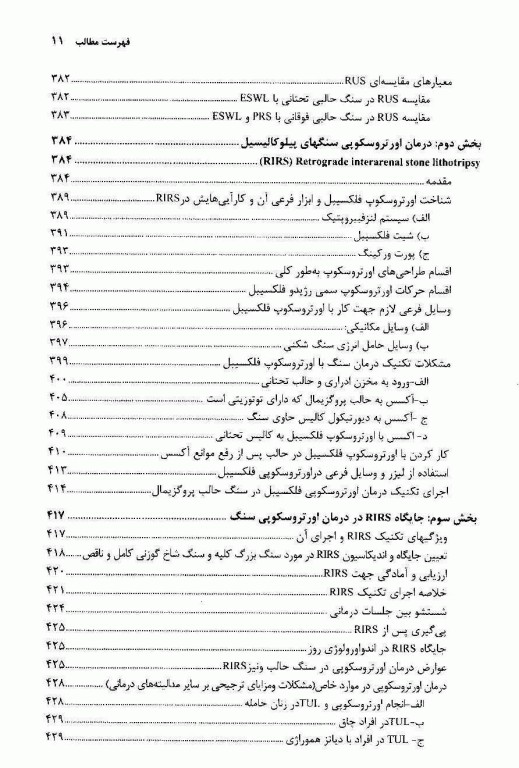 فهرست مطالب ۱۱
معیارهای مقایسه‌ای RUS ۳۸۲
مقایسه RUS در سنگ حالبی تحتانی با ESWL ۳۸۲
مقایسه RUS در سنگ حالبی فوقانی با PRS و ESWL ۳۸۳
بخش دوم: درمان اورتروسکوپی سنگهای پیلوکالیسیل ۳۸۴
(RIRS) Retrograde interarenal stone lithotripsy ۳۸۴
مقدمه ۳۸۴
شناخت اورتروسکوپ فلکسیبل و ابزار فرعی آن و کارآیی‌هایش در RIRS ۳۸۹
الف) سیستم لنزفیبروپتیک ۳۸۹
ب) شیت فلکسیبل ۳۹۱
ج) پورت ورکینگ ۳۹۳
اقسام طراحی‌های اورتروسکوپ به‌طور کلی ۳۹۳
اقسام حرکات اورتروسکوپ سمی رژیدو فلکسیبل ۳۹۴
وسایل فرعی لازم جهت کار با اورتروسکوپ فلکسیبل ۳۹۶
الف) وسایل مکانیکی: ۳۹۶
ب) وسایل حامل انرژی سنگ شکنی ۳۹۷
مشکلات تکنیک درمان سنگ با اورتروسکوپ فلکسیبل ۳۹۹
الف-ورود به مخزن ادراری و حالب تحتانی ۴۰۰
ب-آکسس به حالب پروگزیمال که دارای توتوزیتی است ۴۰۵
ج -آکسس به دیورتیکول کالیس حاوی سنگ ۴۰۸
د- اکسس با اورتروسکوپ فلکسیبل به کالیس تحتانی ۴۰۹
کار کردن با اورتروسکوپ فلکسیبل در حالب پس از رفع موانع آکسس ۴۱۰
استفاده از لیزر و وسایل فرعی دراورتروسکوپی فلکسیبل ۴۱۳
اجرای تکنیک درمان اورتروسکوپی فلکسیبل در سنگ حالب پروگزیمال ۴۱۴
بخش سوم: جایگاه RIRS در درمان اورتروسکوپی سنگ ۴۱۷
ویژگیهای تکنیک RIRS و اجرای آن ۴۱۷
تعیین جایگاه و اندیکاسیون RIRS در مورد سنگ بزرگ کلیه و سنگ شاخ گوزنی کامل و ناقص ۴۱۸
ارزیابی و آمادگی جهت RIRS ۴۲۰
خلاصه اجرای تکنیک RIRS ۴۲۱
شستشو بین جلسات درمانی ۴۲۴
پی‌گیری پس از RIRS ۴۲۵
جایگاه RIRS در اندواورولوژی روز ۴۲۵
عوارض درمان اورتروسکوپی در سنگ حالب ونیز RIRS ۴۲۵
درمان اورتروسکوپی در موارد خاص(مشکلات ومزایای ترجیحی بر سایر مدالیته‌های درمانی) ۴۲۸
الف-انجام اورتروسکوپی و TUL در زنان حامله ۴۲۸
ب-TUL در افراد چاق ۴۲۹
ج- TUL در افراد با دیاتز هموراژی ۴۲۹